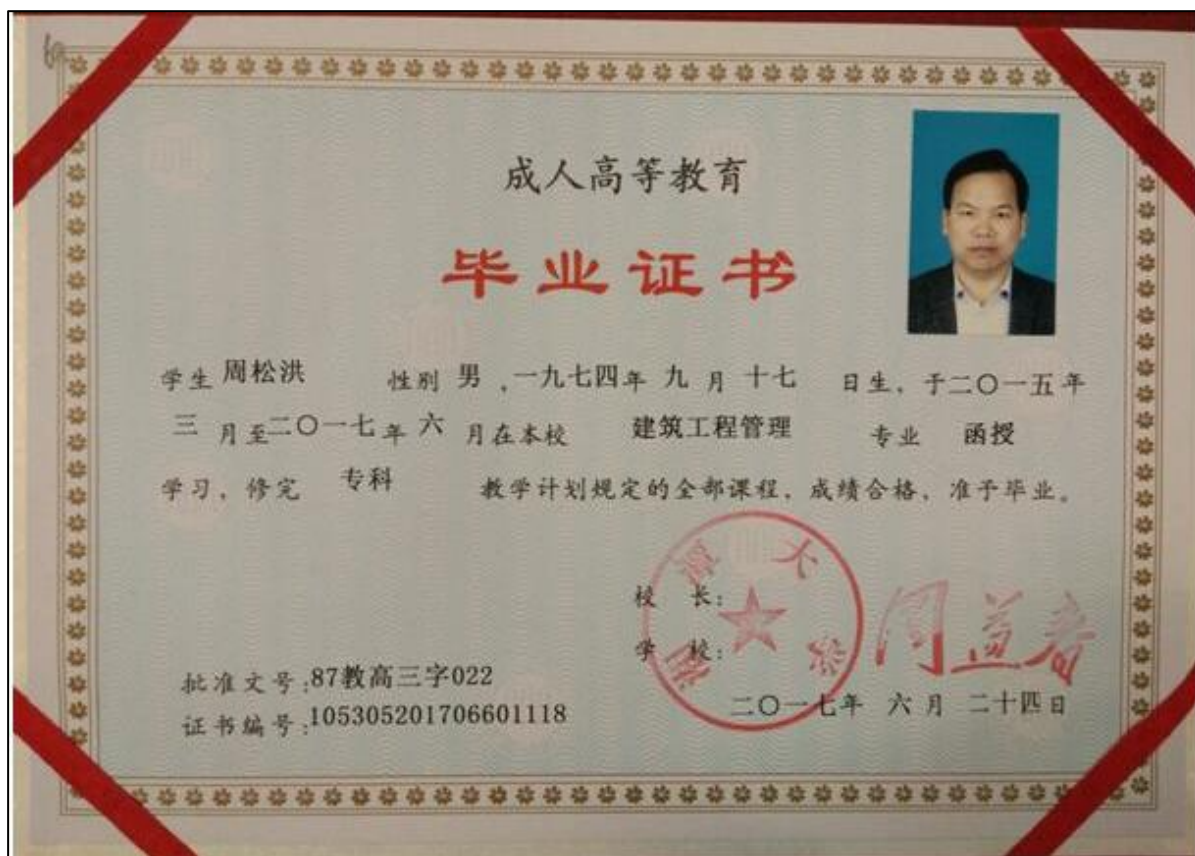 成人高等教育
毕业证书
学生 周松洪 性别 男 ,一九七四年 九 月 十七 日生, 于二〇一五年
三 月至二〇一七年 六 月在本校 建筑工程管理 专业 函授
学习, 修完 专科 教学计划规定的全部课程, 成绩合格, 准予毕业。
校 长: 周益春
学 校:
湘潭大学
批准文号:87教高三字022
证书编号:105305201706601118
二〇一七年 六月 二十四日